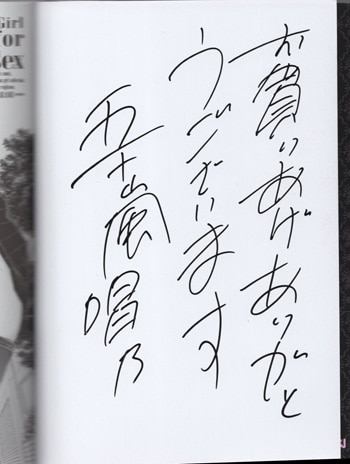 お買いあげありがと
うございます
五十嵐唱乃
Girl
for
Sex